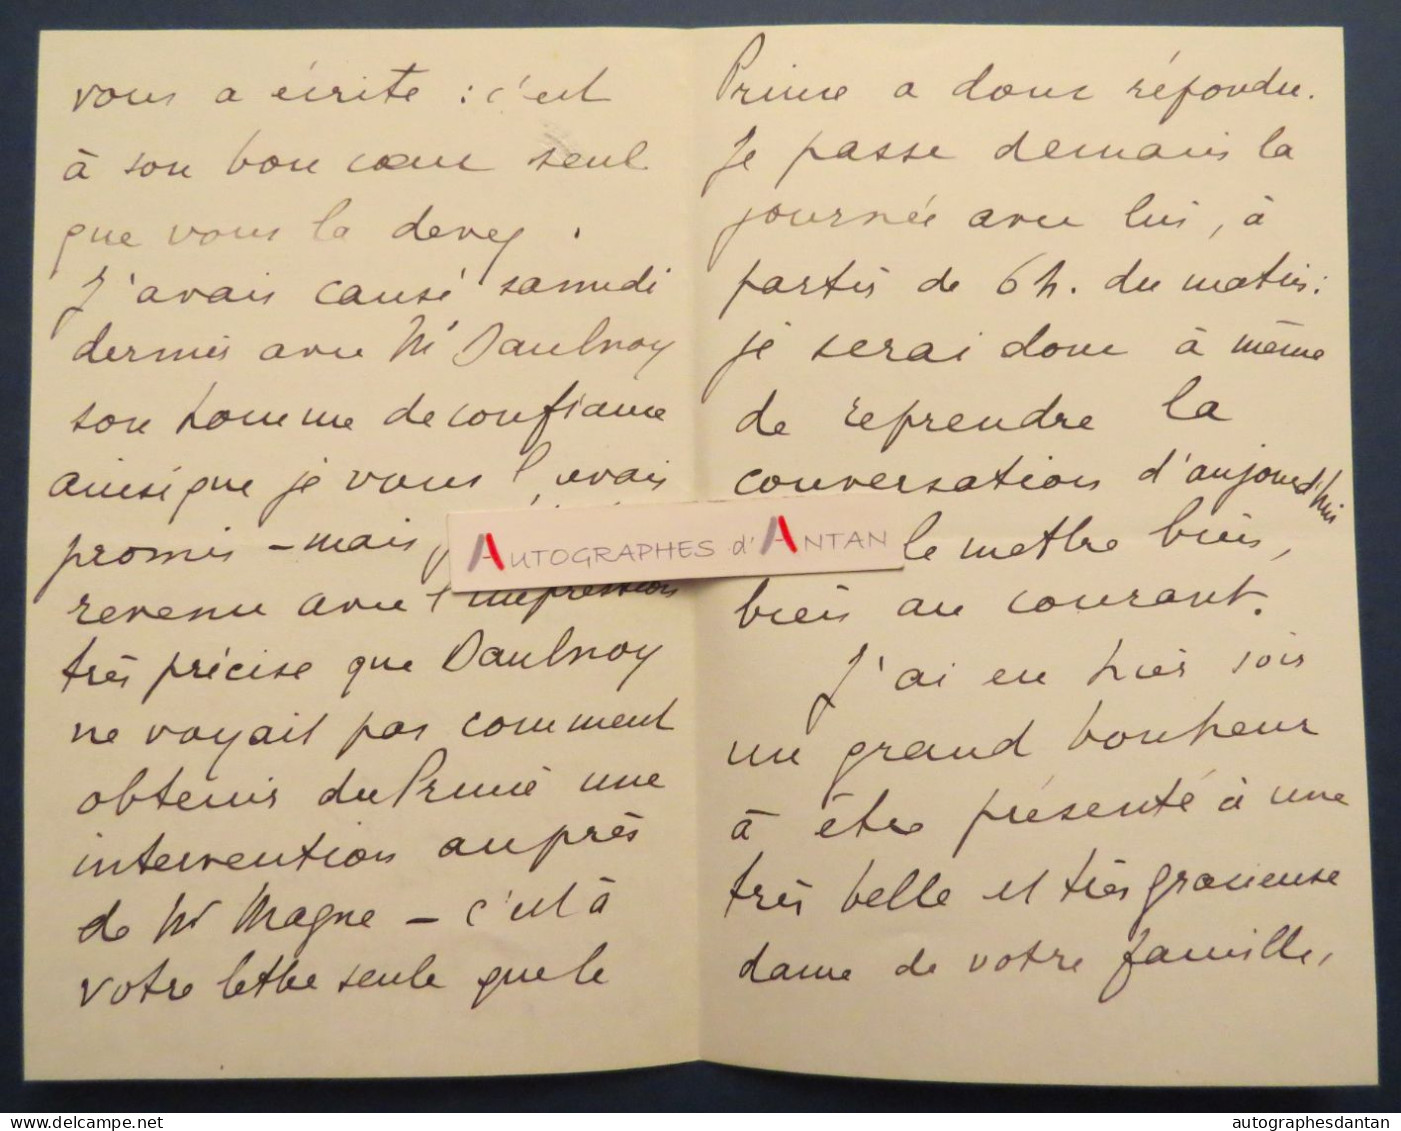 vous a écrite : c'est
à son bon cœur seul
que vous la devez.
J'avais causé samedi
dernier avec Mr Daulnoy
son homme de confiance
ainsi que je vous l'avais
promis - mais
revenu avec l'impression
très précise que Daulnoy
ne voyait pas comment
obtenir du Prince une
intervention auprès
de Mr Magne - c'est à
votre lettre seule que le
Prince a donc répondu.
Je passe demain la
journée avec lui, à
partir de 6 h. du matin :
je serai donc à même
de reprendre la
conversation d'aujourd'hui
le mettre bien,
bien au courant.
J'ai eu hier soir
un grand bonheur
à être présenté à une
très belle et très gracieuse
dame de votre famille,
AUTOGRAPHES d'ANTAN
delcampe.net
autographesdantan